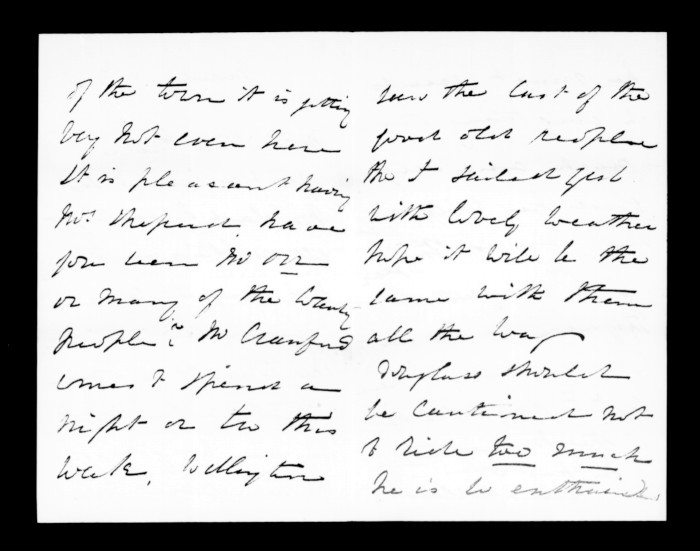 of the town it is getting
very hot even here
It is pleasant having
Mrs Shepherd, have
you seen Mr Orr
or many of the County
people? Mr Cranford
comes to spend a
night or two this
week. Wellington
the last of the
good old
the I sailed yest
with lovely weather
hope it will be the
same with them
all the way
Douglass should
be cautioned not
to ride too much
he is so